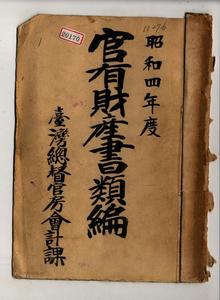 昭和四年度
官有財產書類編
臺灣總督官房會計課
20170
11-76